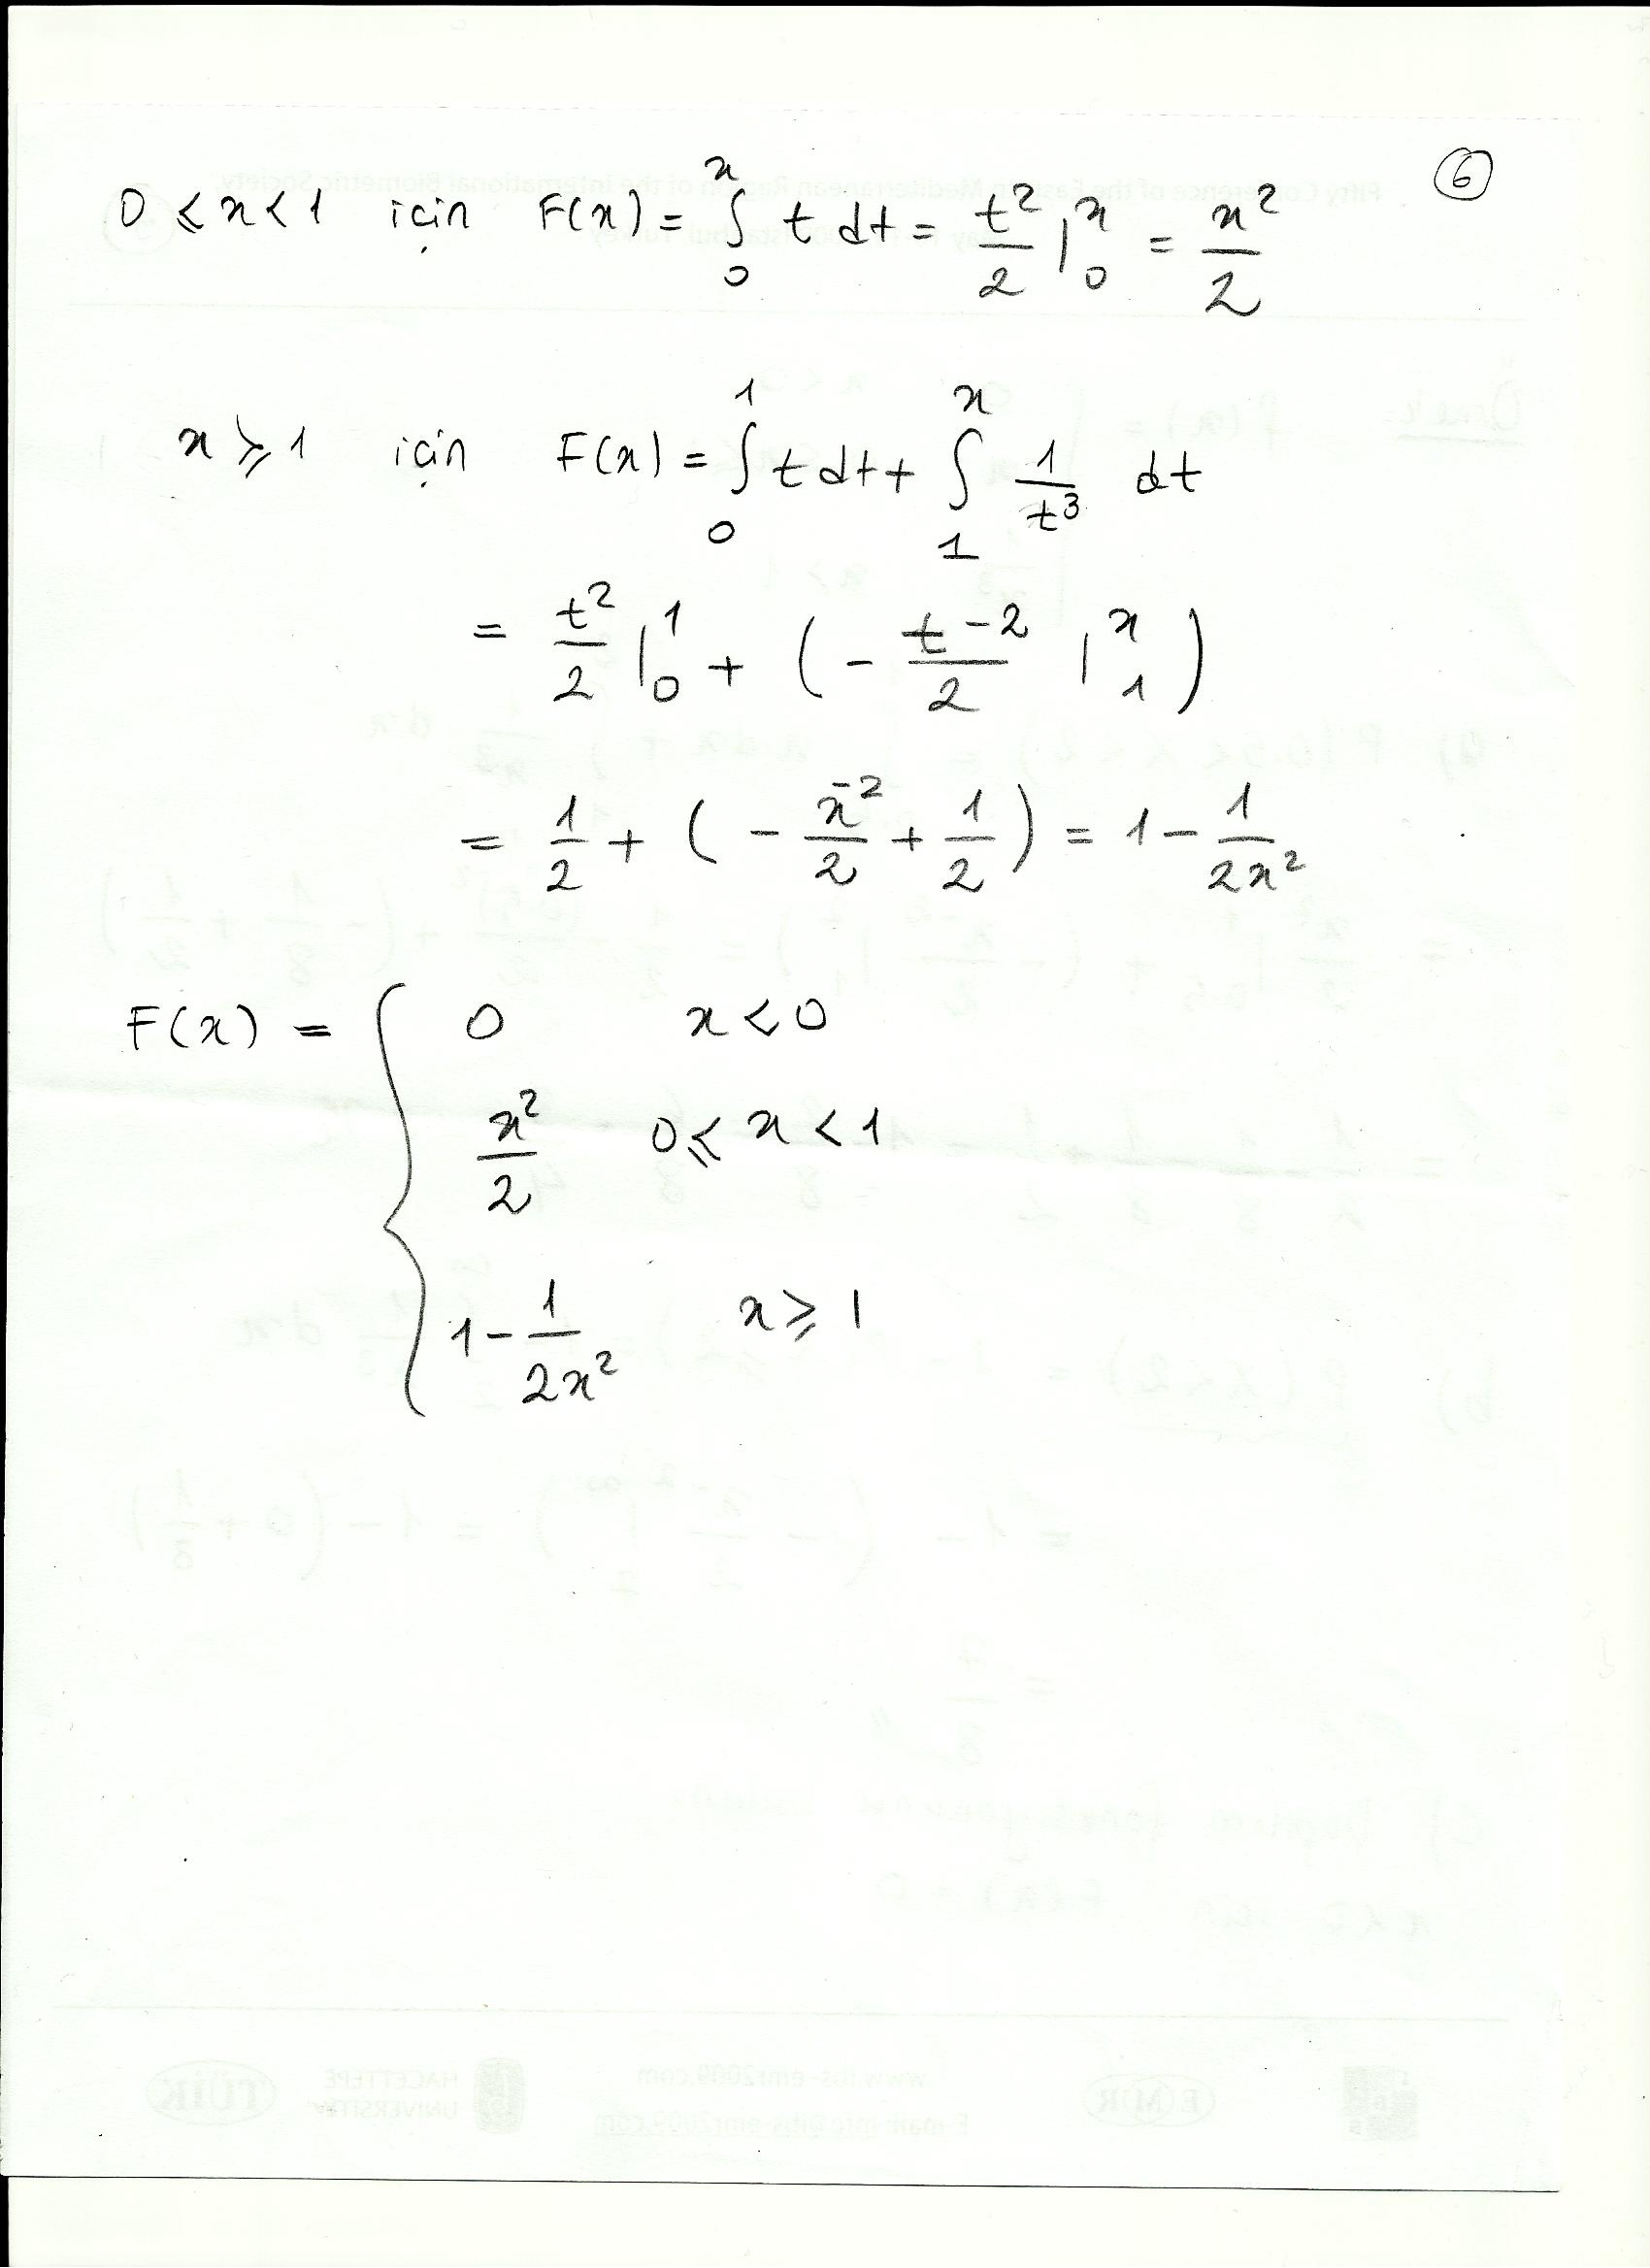 6
0 ≤ x < 1 için F(x) = ∫₀ˣ t dt = t²/2 |₀ˣ = x²/2
x ≥ 1 için F(x) = ∫₀¹ t dt + ∫₁ˣ 1/t³ dt
= t²/2 |₀¹ + ( - t⁻²/2 |₁ˣ )
= 1/2 + ( - x⁻²/2 + 1/2 ) = 1 - 1/2x²
F(x) = { 0 x < 0
x²/2 0 ≤ x < 1
1 - 1/2x² x ≥ 1